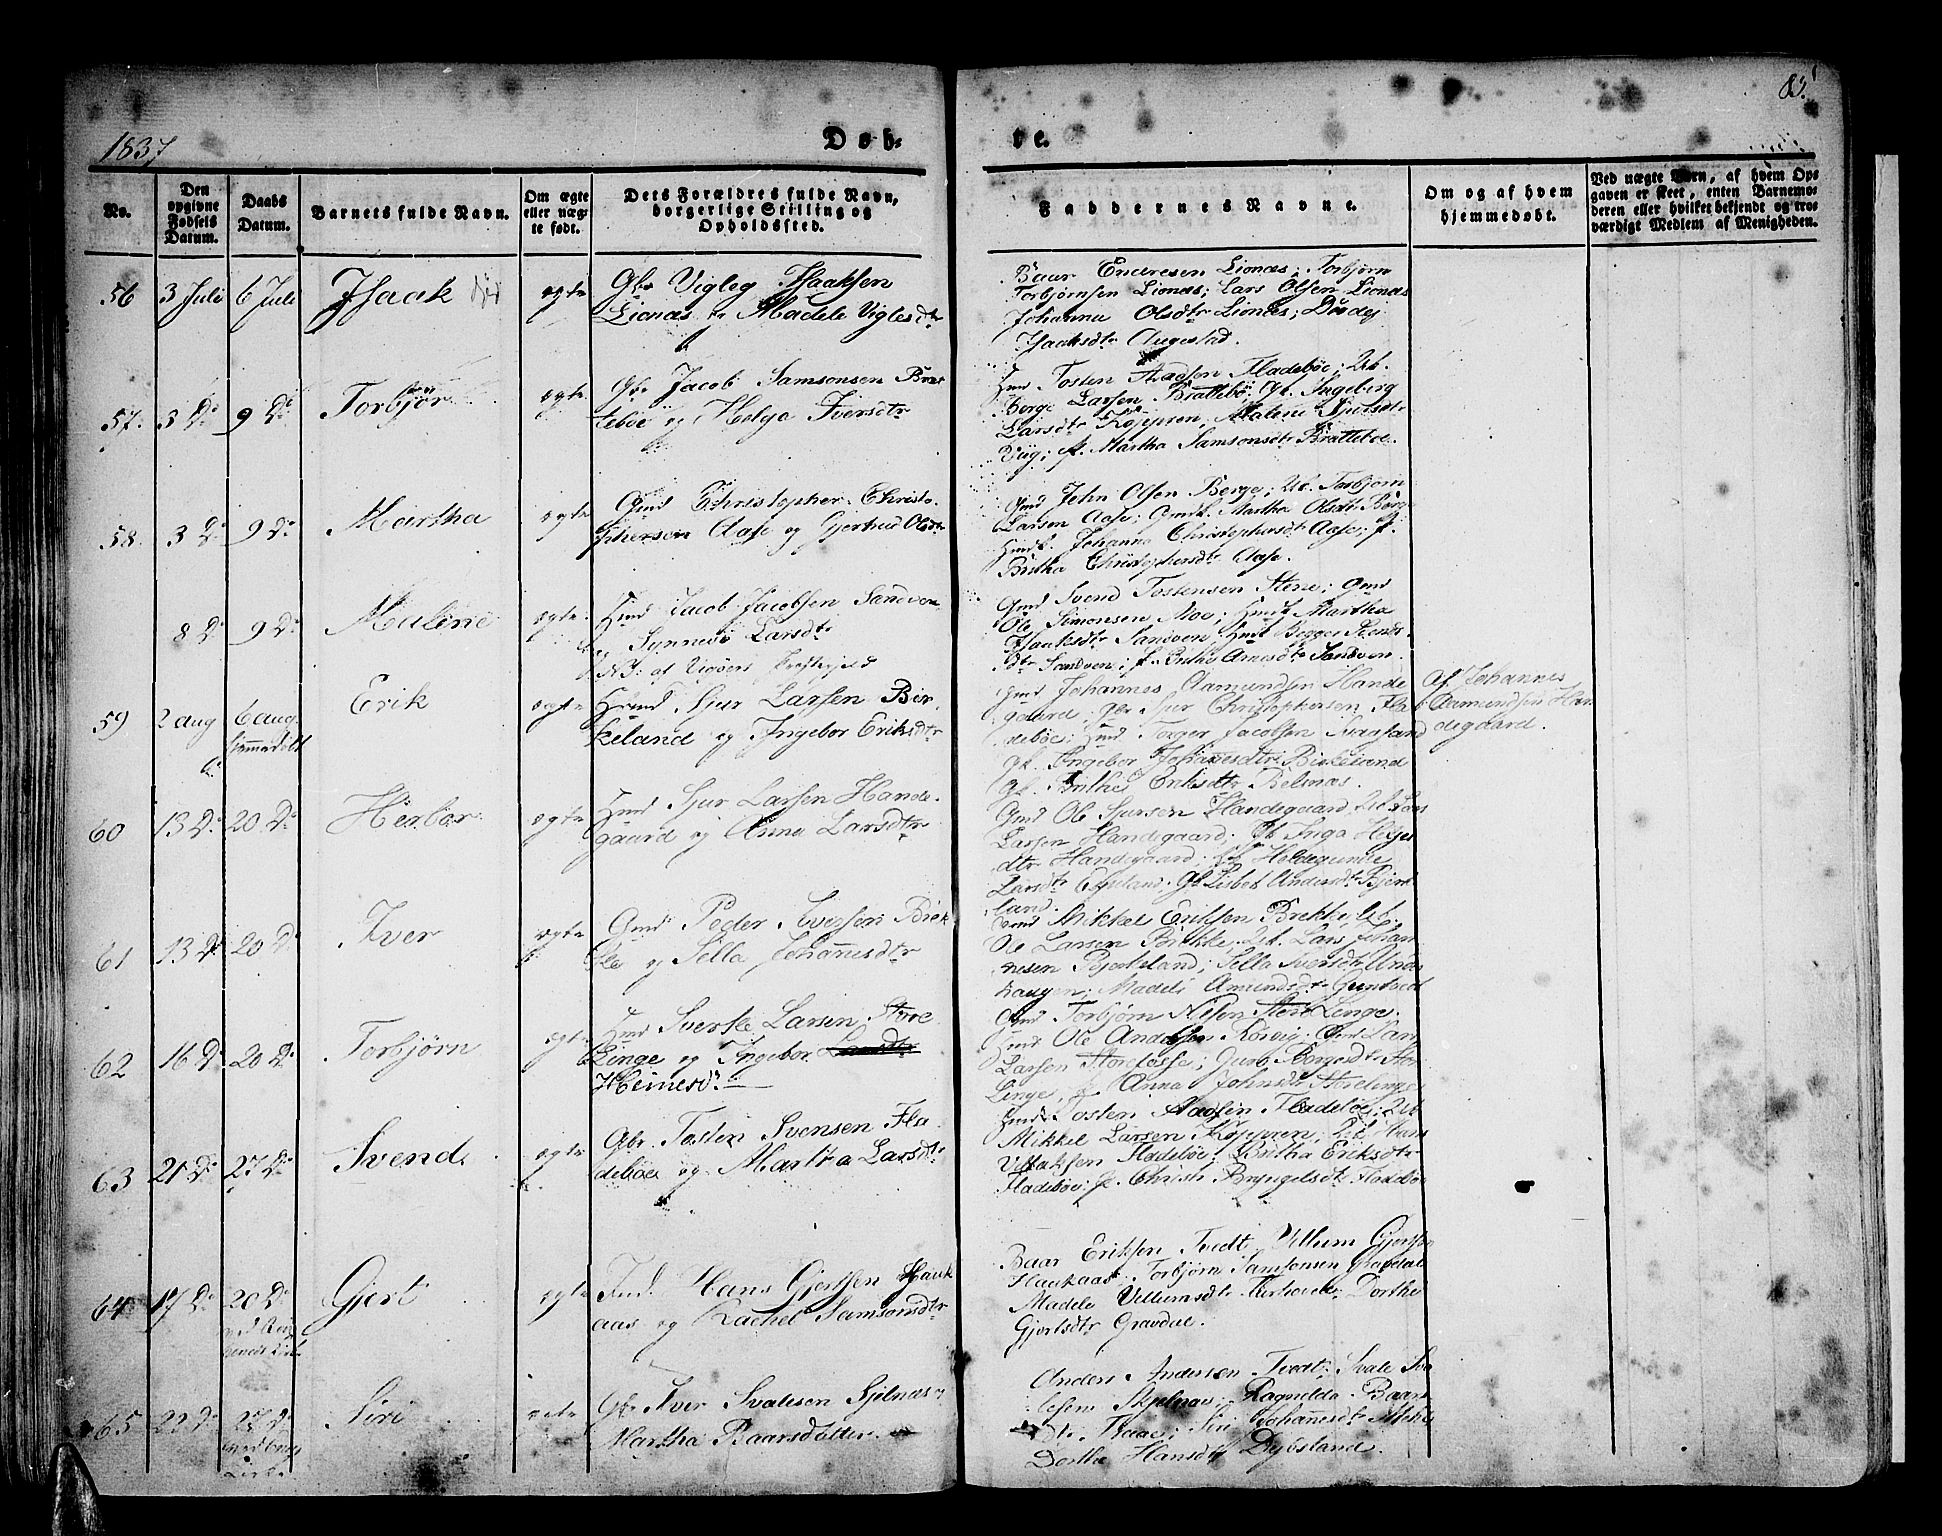 1837
Døb-
te.
No.
Den opgivne Fødsels Datum.
Daabs Datum.
Barnets fulde Navn.
Om ægte eller uægte født.
Dets Forældres fulde Navn, borgerlige Stilling og Opholdssted.
Faddernes Navne.
Om og af hvem hjemmedøbt.
Ved uægte Børn, af hvem Opgaven er skeet, enten Barnemoderen eller hvilket bekjendt og troværdigt Medlem af Menigheden.
56 3 Juli 6 Juli Isaak ægte
Gbr Vigleg Isaaksen
Lionæs og Madele Viglesdtr
Baar Enersen Lionæs; Torbjørn
Torbjørnsen Lionæs; Lars Olsen Lionæs
Johanna Olsdtr Lionæs;
Isaaksdtr Augestad.
57. 3 Do 9 Do Torbjør ægte
Gbr Jacob Samsonsen Brat
tebøe og Helga Iversdtr
Tosten Aadsen Fladebøe; Ut.
Børge Larsen Brattebø; Gk. Ingeberg
Larsdtr Køppren, Malene Sjursdtr
Viig; p. Martha Samsonsdtr Brattebøe.
58. 3 Do 9 Do Martha ægte
Gmd Christopher Christo-
phersen Aase og Gjertrud Olsdtr
Gmd John Olsen Berge; Ut. Torbjørn
Larsen Aase; Gmdk. Martha Olsdtr Berg
Hmdk. Johanna Christophersdtr Aase; p.
Britha Christophersdtr Aase.
8 Do 9 Do Malene ægte
Hmd Jacob Jacobsen Sandven
og Synneva Larsdtr
NB: af Vigøers Præstegjeld
Gmd Svend Tostensen Stene; Gmd
Ole Simonsen Moe; Hmdk Martha
Isaksdtr Sandven Hmdk
dtr Sandven; p. Brithe Arnesdtr Sandven.
59 2 aug 6 aug. hjemmedøbt Erik ægte
Hmd Sjur Larsen Bir-
keland og Ingebor Eriksdtr
Gmd Johannes Aamundsen Hande
gaard; Gbr Sjur Christophersen Fla
debøe; Hmd Torger Jacobsen
Gk. Ingebor Johannesdtr Birkeland
Gk. Brithe Eriksdtr Belsnæs.
Af Johannes
Aamundsen Han
degaard.
60 13 Do 20 Do Herbor ægte
Hmd Sjur Larsen Hande-
gaard og Anna Larsdtr
Gmd Ole Sjursen Handegaard, Ut Lars
Larsen Handegaard; Gk Inga
dtr Handegaard; Holdegunde
Larsdtr; Gk Lisbet Andersdtr Bjerke
land.
61 13 Do 20 Do Iver ægte
Gmd Peder Iversen Brek
ke og Sella Johannesdtr
Gmd Mikkel Eriksen Brekke, Ut.
Ole Larsen Brekke, Ut. Lars Johan
nesen Bjerkeland; Sella Iversdtr
haugen; Madele Amundsdtr
62 16 Do 20 Do Torbjørn ægte
Hmd Sverke Larsen Store
Linge og Ingebor Larsdtr
Heinesdr.
Gmd Torbjørn Nilsen Store Linge;
Hmd Ole Andersen Rosvig; Gmd Lars
Larsen Storelosse; Guro Børgesdtr Store
Linge, p. Anna Johnsdtr Storelinge
63 21 Do 27 Do Svend ægte
Gbr. Tosten Svensen Fla
debøe og Martha Larsdtr
Tosten Aadsen Fladebøe; Ut
Mikkel Larsen Køppren; Ut. Hans
Villaksen Fladebøe; Britha Eriksdtr
Fladebøe; p. Christi Bryngelsdtr Fladebøe
64 17 Do 20 Do Gjert ægte
Ind. Hans Gjertsen Hauk
aas og Rachel Samsonsdtr
Baar Eriksen Tvedt, Villum Gjertsen
Haukaas; Torbjørn Samsonsen Gravdal
Madele Villumsdtr; Dorthe
Gjertsdtr Gravdal.
65 22 Do 27 Do Siri ægte
Gbr Iver Svalesen Sjelnæs og
Martha Baarsdatter.
Anders Andersen Tvedt; Svale Sva
lesen Skjelnæs; Ragnilda Baars
dtr; Siri Johannesdtr
Dorthe Hansdtr Dysland.